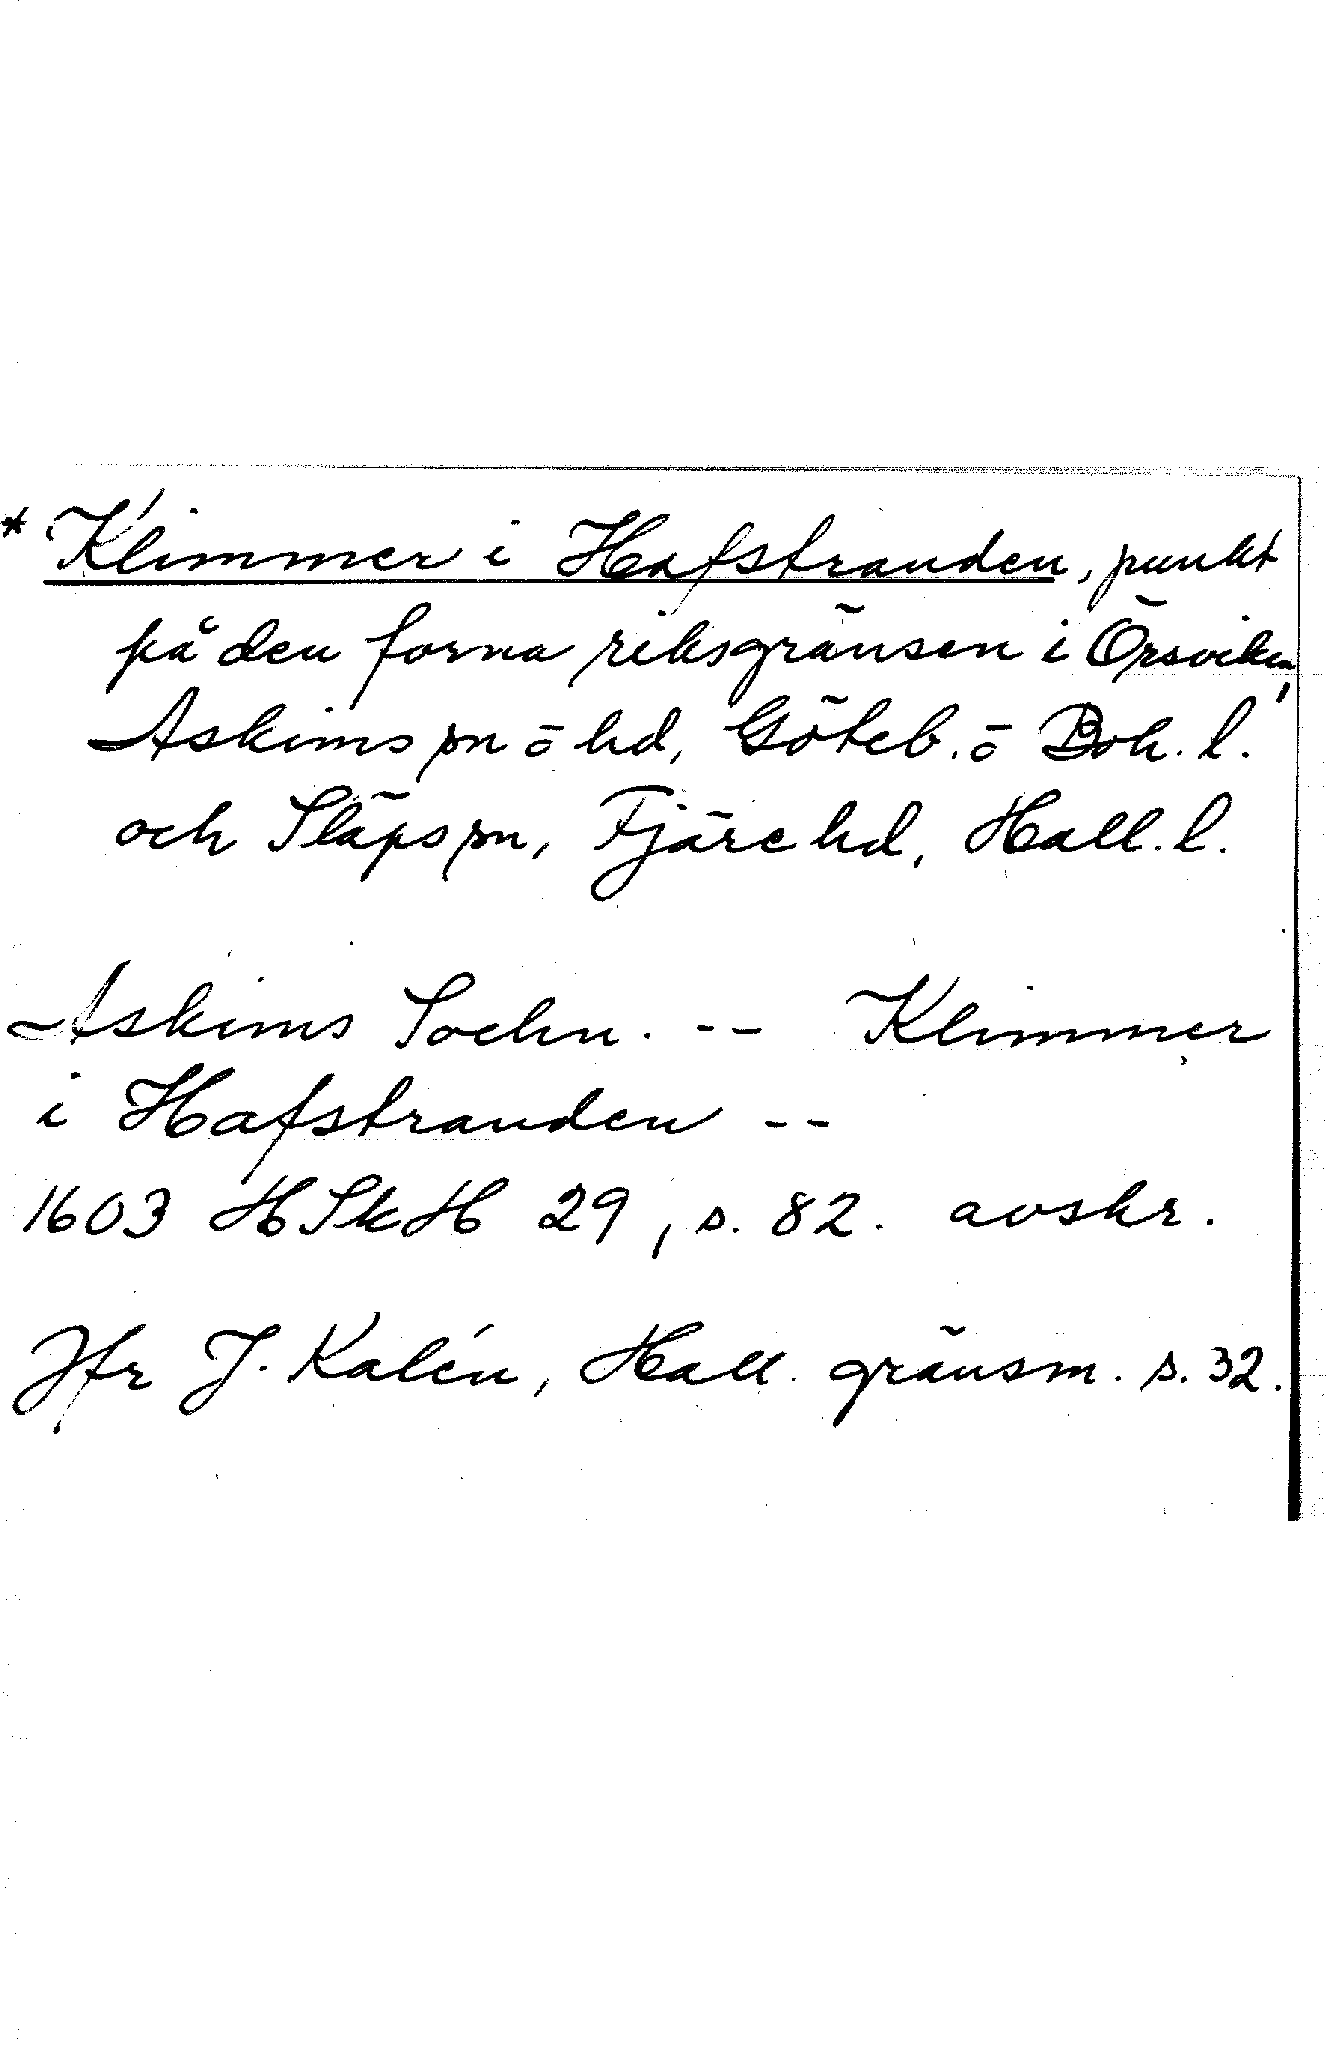 * Klimmer i Hafstranden, punkt
på den forna riksgränsen i Örsviken,
Askims sn o hd, Göteb. o Boh. l.
och Släps sn, Fjäre hd, Hall. l.
Askims Sochn. -- Klimmer
i Hafstranden --
1603 HSkH 29, s. 82. avskr.
Jfr J. Kalén, Hall. gränsm. s. 32.